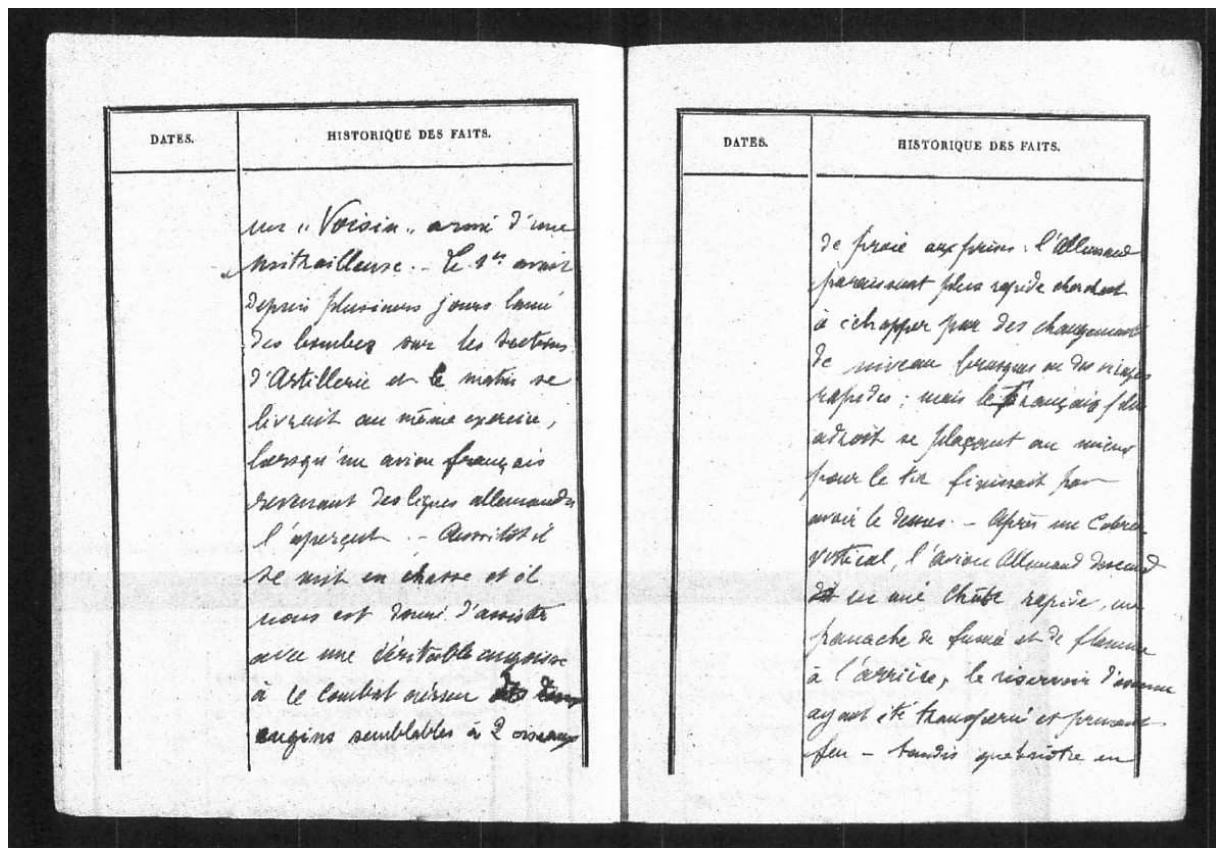 DATES.
HISTORIQUE DES FAITS.
un " Voisin " armé d'une
mitrailleuse. - Le 1er avait
depuis plusieurs jours lancé
des bombes sur les secteurs
d'Artillerie et le matin se
livrait au même exercice,
lorsqu'un avion français
revenant des lignes allemandes
l'aperçut. - Aussitôt il
se mit en chasse et il
nous est donné d'assister
avec une véritable angoisse
à ce combat aérien des deux
engins semblables à 2 oiseaux
DATES.
HISTORIQUE DES FAITS.
de proie aux prises : l'Allemand
paraissant plus rapide cherchant
à échapper par des changements
de niveau brusques ou des virages
rapides ; mais le Français plus
adroit se plaçant au mieux
pour le tir finissait par
avoir le dessus. - Après un cabré
vertical, l'avion Allemand descend
en une chute rapide, un
panache de fumée et de flamme
à l'arrière, le réservoir d'essence
ayant été transpercé et prenant
feu - tandis que notre en